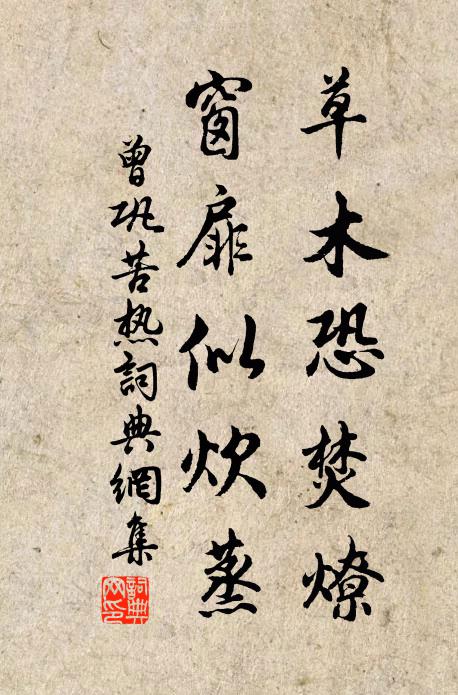 草木恐焚燎
窗扉似炊蒸
曾巩苦热詞典網集
詞典网印